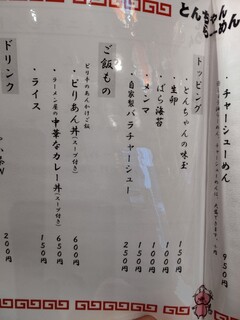 とんちゃん
らーめん
・チャーシューめん
950円
トッピング
・とんちゃんの味玉 150円
・生卵 100円
・ばら海苔 100円
・メンマ 150円
・自家製バラチャーシュー 250円
ご飯もの
ピリ辛のあんかけご飯
・ピリあん丼(スープ付き) 600円
ラーメン屋の中華なカレー丼(スープ付き) 650円
・ライス 150円
ドリンク
200円